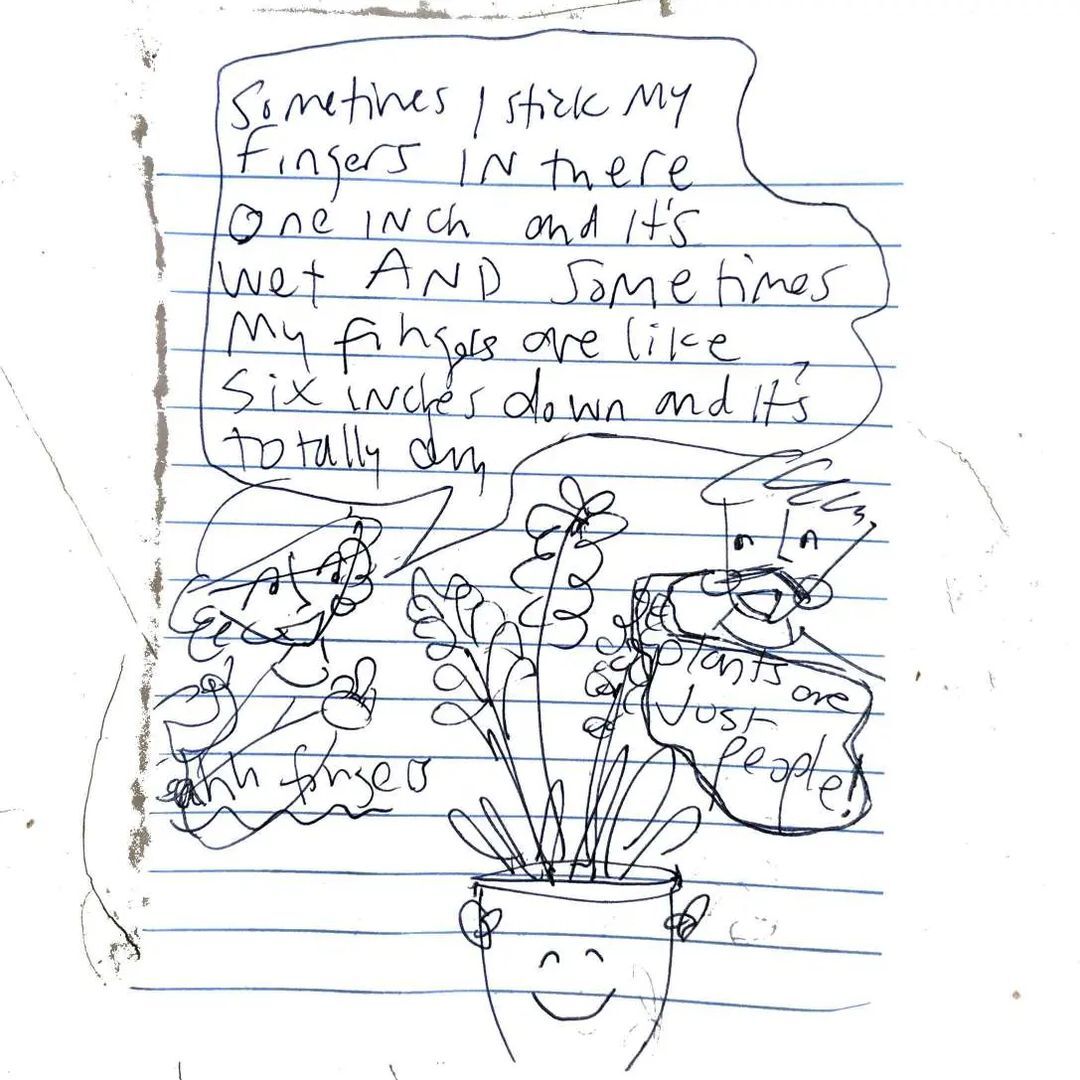 Sometimes I stick My
Fingers IN there
One INch and It's
wet AND Sometimes
My fingers are like
Six inches down and It's
totally dry
plants are
Just
People!
Ahh fingers